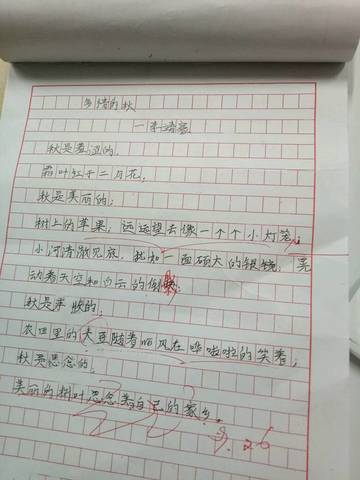 多情的秋
秋是
霜叶红于二月花;
秋是美丽的,
树上的苹果,远远望去像一个个小灯笼;
小河清澈见底,犹如一面硕大的银镜,晃
动着天空和白云的倒
秋是丰收的,
农田里的大豆随着风在哗啦啦的笑着;
秋是思念的,
美丽的树叶思念着自己的家乡。
9.26